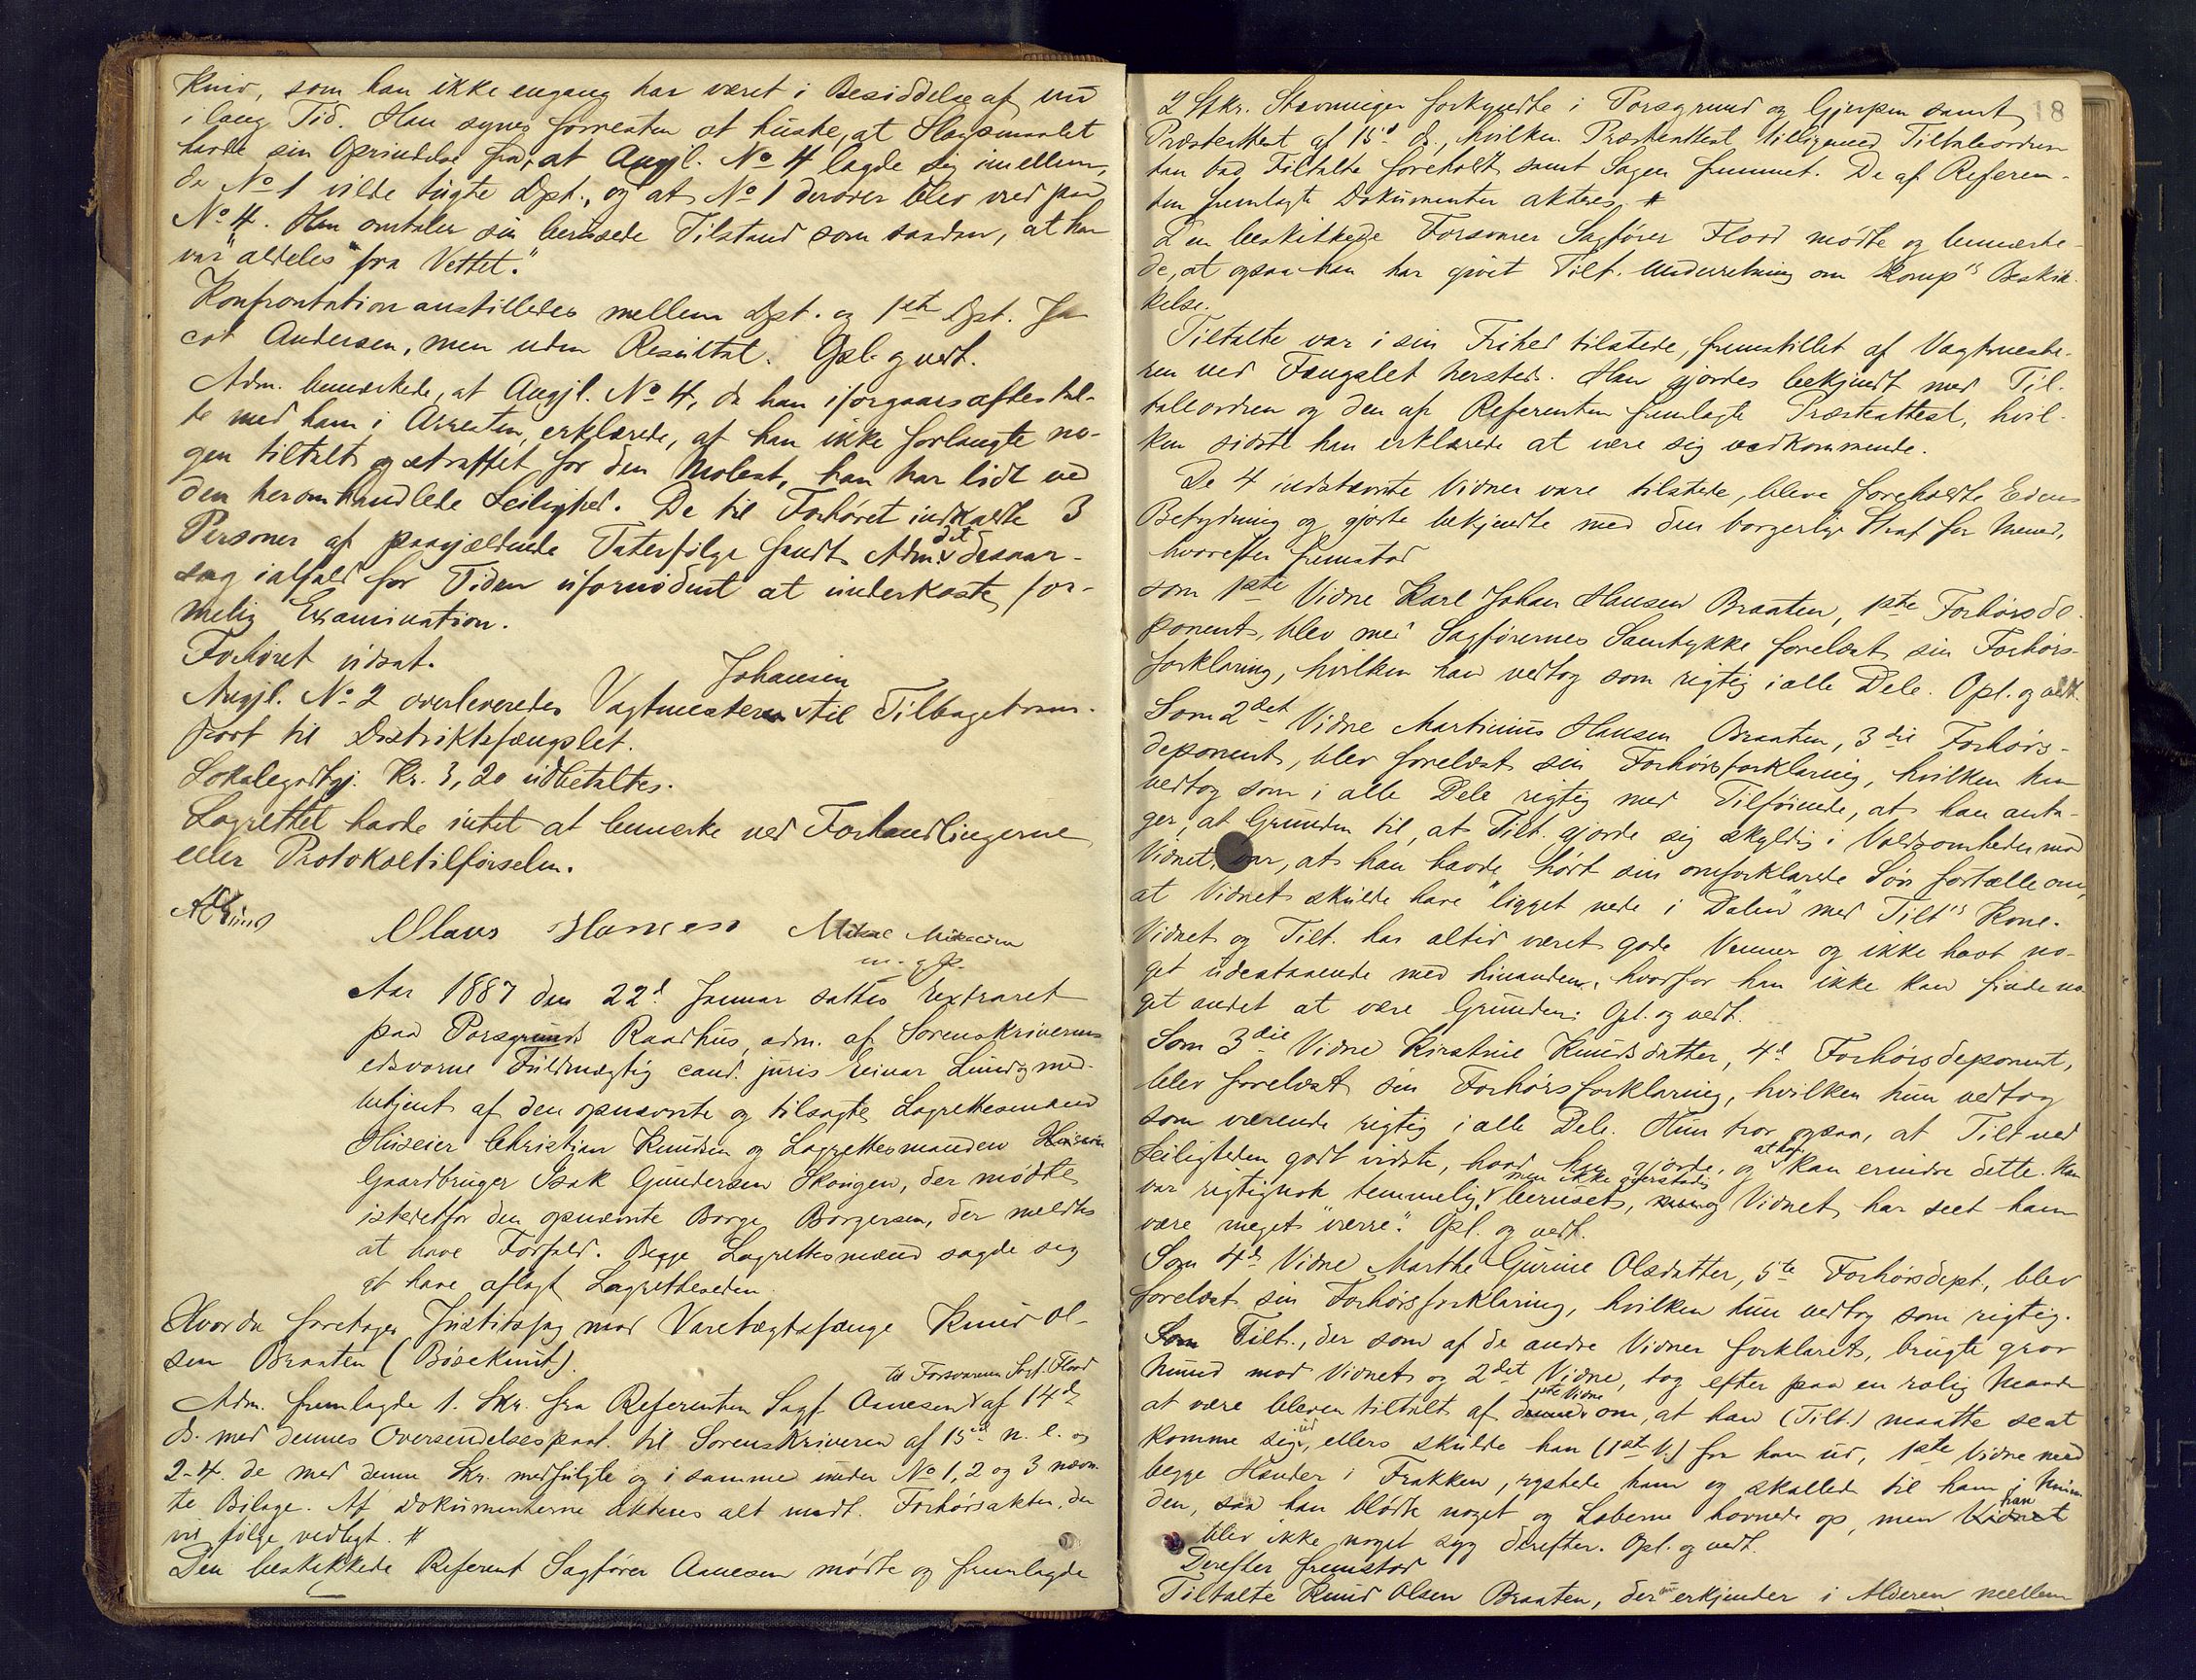 Kniv, som han ikke engang har været i Besiddelse af nu
i lang Tid. Han synes forresten at huske, at Slagsmaalet
havde sin Oprindelse fra, at Angjl. No 4 lagde sig imellem,
da No 1 vilde tugte Dpt., og at No 1 derover blev vred paa
No 4. Han omtaler sin berusede Tilstand som saadan, at han
var "aldeles fra Vettet."
Konfrontation anstilledes mellem Dpt. og 1ste Dpt. Ja-
cob Andersen, men uden Resultat. Opl. og vedt.
Adm. bemærkede, at Angjl. No 4, da han iforgaars aftes tal-
te med ham i Arresten, erklærede, at han ikke forlangte no-
gen tiltalt og straffet for den Molest, han har lidt ved
den heromhandlede Leilighed. De til Forhøret indkaldte 3
Personer af paagjældende Taterfølge fandt Adm. det desaar-
sag ialfald for Tiden ufornødent at underkaste for-
melig Examination.
Forhøret udsat.
Angjl. No 2 overleveredes Vagtmesteren Johansen til Tilbagetrans-
port til Distriktsfængslet.
Lokalegodtgj. Kr. 3,20 udbetaltes.
Lagrettet havde intet at bemærke ved Forhandlingerne
eller Protokoltilførselen.
Olaus Hansen Mikal Mikalsen
m. p. P.
Aar 1887 den 22d Januar sattes Extraret
paa Porsgrunds Raadhus, adm. af Sorenskriverens
edsvorne Fuldmægtig cand. juris Einar Lund og med-
betjent af den opnævnte og tilsagte Lagrettesmand
Huseier Christian Knudsen og Lagrettesmanden
Gaardbruger Isak Gundersen Skougen, der mødte
istedetfor den opnævnte Borge Borgersen, der meldtes
at have Forfald. Begge Lagrettesmænd sagde sig
at have aflagt Lagrettheseden.
Hvor da foretoges Justitssag mod Varetægtsfange Knud Ol-
sen Braaten (Bøseknut).
Adm. fremlagde 1. Skr. fra Referenten Sagf. Aanesen til Forsvareren Sagf. Flood af 14d
ds. med dennes Oversendelsespaat. til Sorenskriveren af 15d n. e. og
2-4. de med denne Skr. medfulgte og i samme under No 1, 2 og 3 nævn-
te Bilage. Af Dokumenterne akteres alt undt. Forhørsakten, der
vil følge vedlagt. #
Den beskikkede Referent Sagfører Aanesen mødte og fremlagde
18
2 Stkr. Stævninger forkyndte i Porsgrund og Gjerpen samt
Præsteattest af 15d ds., hvilken Præsteattest tilligemed Tiltaleordren
han bad Tiltalte foreholdt samt Sagen fremmet. De af Referen-
ten fremlagte Dokumenter akteres #
Den beskikkede Forsvarer Sagfører Flood mødte og bemærke-
de, at ogsaa han har givet Tilt. Underretning om Komp's Beskik-
kelse.
Tiltalte var i sin Frihed tilstede, fremstillet af Vagtmeste-
ren ved Fængslet hersteds. Han gjordes bekjendt med Til-
taleordren og den af Referenten fremlagte Præsteattest, hvil-
ken sidste han erklærede at være sig vedkommende.
De 4 indstævnte Vidner vare tilstede, bleve foreholdte Edens
Betydning og gjorte bekjendte med den borgerlige Straf for Mened,
hvorefter fremstod
som 1ste Vidne Karl Johan Hansen Braaten, 1ste Forhørsde-
ponent, blev med Sagførernes Samtykke forelæst sin Forhørs-
forklaring, hvilken han vedtog som rigtig i alle Dele. Opl. og vedt.
Som 2det Vidne Martinius Hansen Braaten, 3die Forhørs-
deponent, blev forelæst sin Forhørsforklaring, hvilken han
vedtog som i alle Dele rigtig med Tilføiende, at han anta-
ger, at Grunden til, at Tilt. gjorde sig skyldig i Voldsomheder mod
Vidnet, var, at han havde hørt sin omforklarede Søn fortælle om,
at Vidnet skulde have "ligget nede i Dalen" med Tilt's Kone.
Vidnet og Tilt. har altid været gode Venner og ikke havt no-
get udestaaende med hinanden, hvorfor han ikke kan finde no-
get andet at være Grunden. Opl. og vedt.
Som 3die Vidne Kirstine Knudsdatter, 4d Forhørsdeponent,
blev forelæst sin Forhørsforklaring, hvilken hun vedtog
som værende rigtig i alle Dele. Hun tror ogsaa, at Tilt ved
Leiligheden godt vidste, hvad han gjorde, og at han kan erindre dette. Han
var rigtignok temmelig, men ikke overstadig beruset, og Vidnet har seet ham
være meget "værre". Opl. og vedt.
Som 4de Vidne Marthe Gurine Olsdatter, 5te Forhørsdept, blev
forelæst sin Forhørsforklaring, hvilken hun vedtog som rigtig.
Som Tilt., der som af de andre Vidner forklaret, brugte grov
Mund mod Vidnet og 2det Vidne, tog efter paa en rolig Maade
at være bleven tiltalt af 1ste Vidne om, at han (Tilt.) maatte se at
komme sig ud, ellers skulde han (1ste V.) faa ham ud, 1ste Vidne med
begge Hænder i Frakken, rystede ham og skallede til ham i Mun-
den, saa han blødte noget og Læberne hovnede op, men Vidnet han
blev ikke noget syg derefter. Opl. og vedt.
Derefter fremstod
Tiltalte Knud Olsen Braaten, der nu erkjender i Alderen mellem